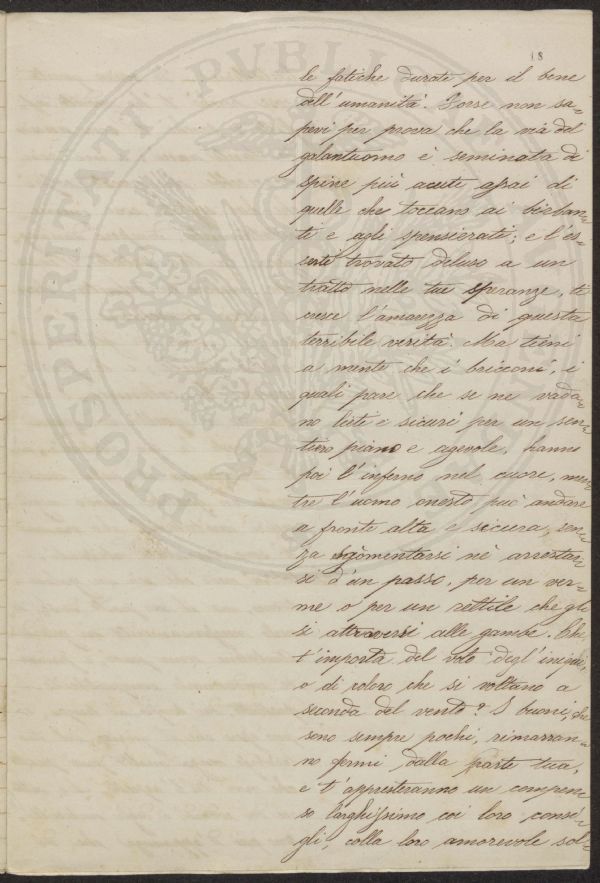 18
le fatiche durate per il bene
dell'umanità. Forse non sa=
pevi per prova che la via del
galantuomo è seminata di
spine più acute assai di
quelle che toccano ai birban=
ti e agli spensierati; e l'es=
serti trovato deluso a un
tratto nelle tue speranze, ti
cresce l'amarezza di questa
terribile verità. Ma tieni
a mente che i bricconi, i
quali pare che se ne vada=
no lieti e sicuri per un sen=
tiero piano e agevole, hanno
poi l'inferno nel cuore, men=
tre l'uomo onesto può andare
a fronte alta e sicura, sen=
za sgomentarsi nè arrestar=
si d'un passo, per un ver=
me o per un rettile che gli
si attraversi alle gambe. Che
t'importa del voto degl'iniqui,
o di coloro che si voltano a
seconda del vento? I buoni, che
sono sempre pochi, rimarran=
no fermi dalla parte tua,
e t'appresteranno un compen=
so larghissimo coi loro consi=
gli, colla loro amorevole sol=
PROSPERITATI PVBLICAE